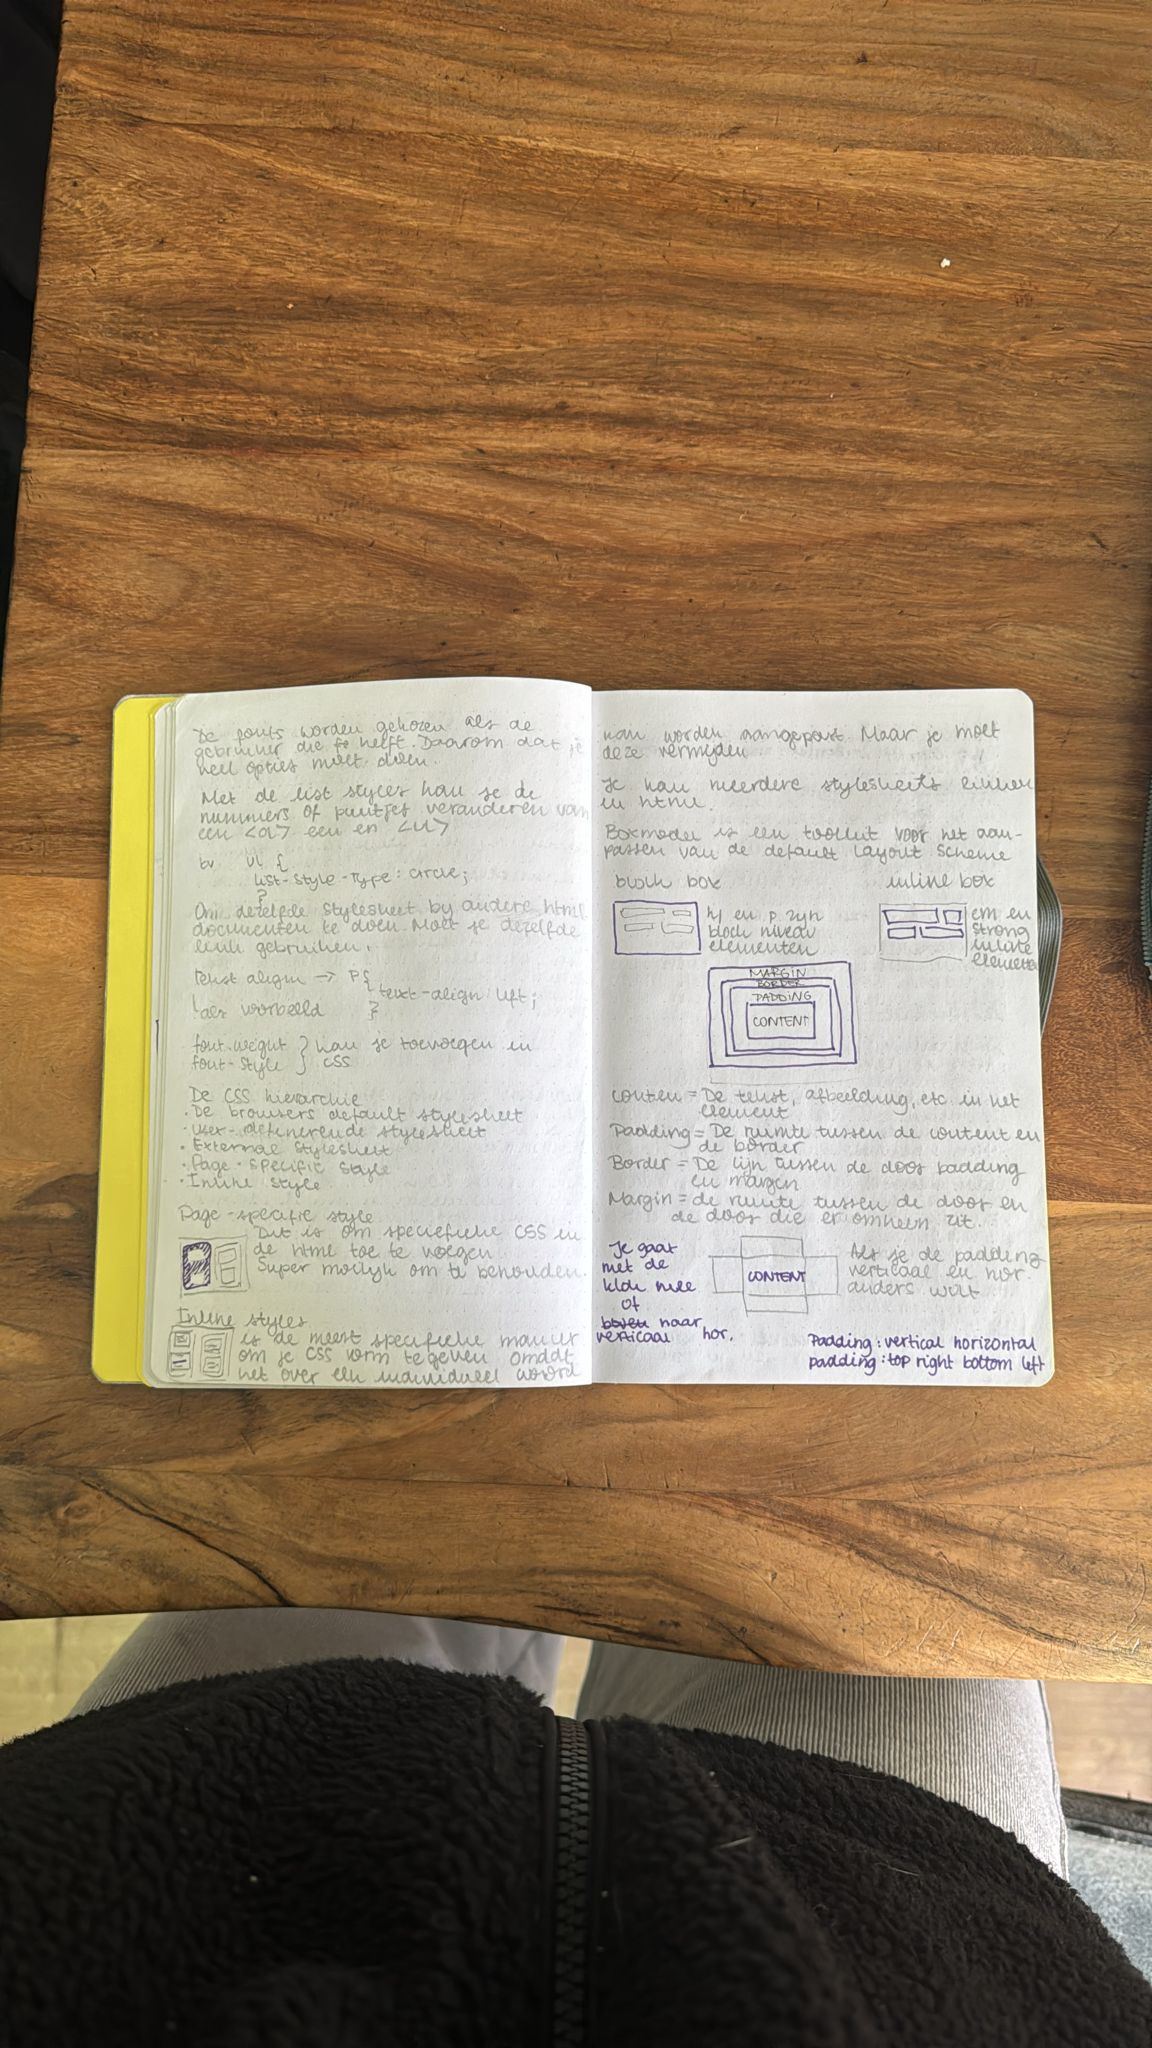 De fonts worden gekozen als de
gebruiker die heeft. Daarom dat je
veel opties moet doen.
Met de list styles kan je de
nummers of puntjes veranderen van
een <ol> een en <ul>
bv. ul {
list-style-type: circle;
}
Om dezelfde stylesheet by andere html
documenten te doen. Moet je dezelfde
link gebruiken.
tekst align → P{
text-align left;
als voorbeeld }
font-weight } kan je toevoegen in
font-style } css
De CSS hierarchie
• De browsers default stylesheet
• User-definerende stylesheet
• External stylesheet
• Page-specific style
• Inline style
Page-specific style
Dit is om speciefieke CSS in
de html toe te voegen.
Super moeilijk om te behouden.
Inline styles
is de meest specifieke manier
om je CSS vorm te geven omdat
het over een individueel woord
kan worden aangepast. Maar je moet
deze vermijden
Je kan meerdere stylesheets linken
in html.
Boxmodel is een toolkit voor het aan-
passen van de default layout scheme
block box
inline box
h1 en p zijn
block niveau
elementen
em en
strong
inline
elementen
MARGIN
BORDER
PADDING
CONTENT
Conten = De tekst, afbeelding, etc in het
element
Padding = De ruimte tussen de content en
de border
Border = De lijn tussen de doos padding
en margin
Margin = de ruimte tussen de doos en
de doos die er omheen zit.
Je gaat
met de
klok mee
of
boven naar
verticaal hor.
CONTENT
Als je de padding
verticaal en hor.
anders wilt
Padding: vertical horizontal
padding: top right bottom left